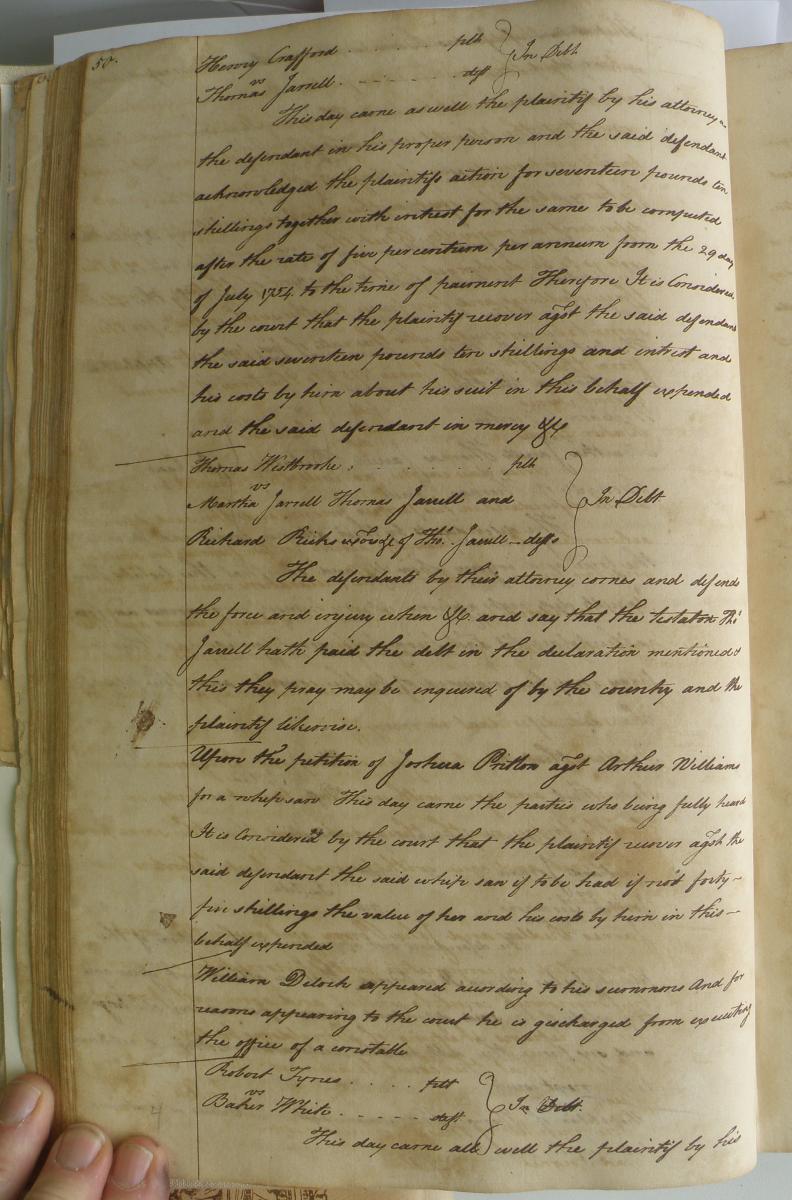 50.
Henry Crafford . . . . . . plt } In Debt
vs
Thomas Jarrell . . . . . . deft
This day came as well the plaintif by his attorney as
the defendant in his proper person and the said defendant
acknowledged the plaintifs action for seventeen pounds ten
shillings together with intrest for the same to be computed
after the rate of five per centum per annum from the 29 day
of July 1754 to the time of paiment Therefore It is Considered
by the court that the plaintif recover agst the said defendant
the said seventeen pounds ten shillings and intrest and
his costs by him about his suit in this behalf expended
and the said defendant in mercy &c
Thomas Westbrooke . . . . . . plt
vs
Martha Jarrell Thomas Jarrell and } In Debt
Richard Ricks of Tho.s Jarrell — defts
The defendants by their attorney comes and defends
the force and injury when &c. and say that the testator Tho.s
Jarrell hath paid the debt in the declaration mentioned &
this they pray may be enquired of by the country and the
plaintif likewise.
Upon the petition of Joshua agst Arthur Williams
for a whip saw This day came the parties who being fully heard
It is Considered by the court that the plaintif recover agst the
said defendant the said whip saw if to be had if not forty–
five shillings the value of her and his costs by him in this —
behalf expended
William Deloch appeared acording to his summons And for
reasons appearing to the court he is discharged from executing
the office of a constable
Robert Tynes . . . . plt
vs
Baker White . . . . . deft } In Debt.
This day came as well the plaintif by his